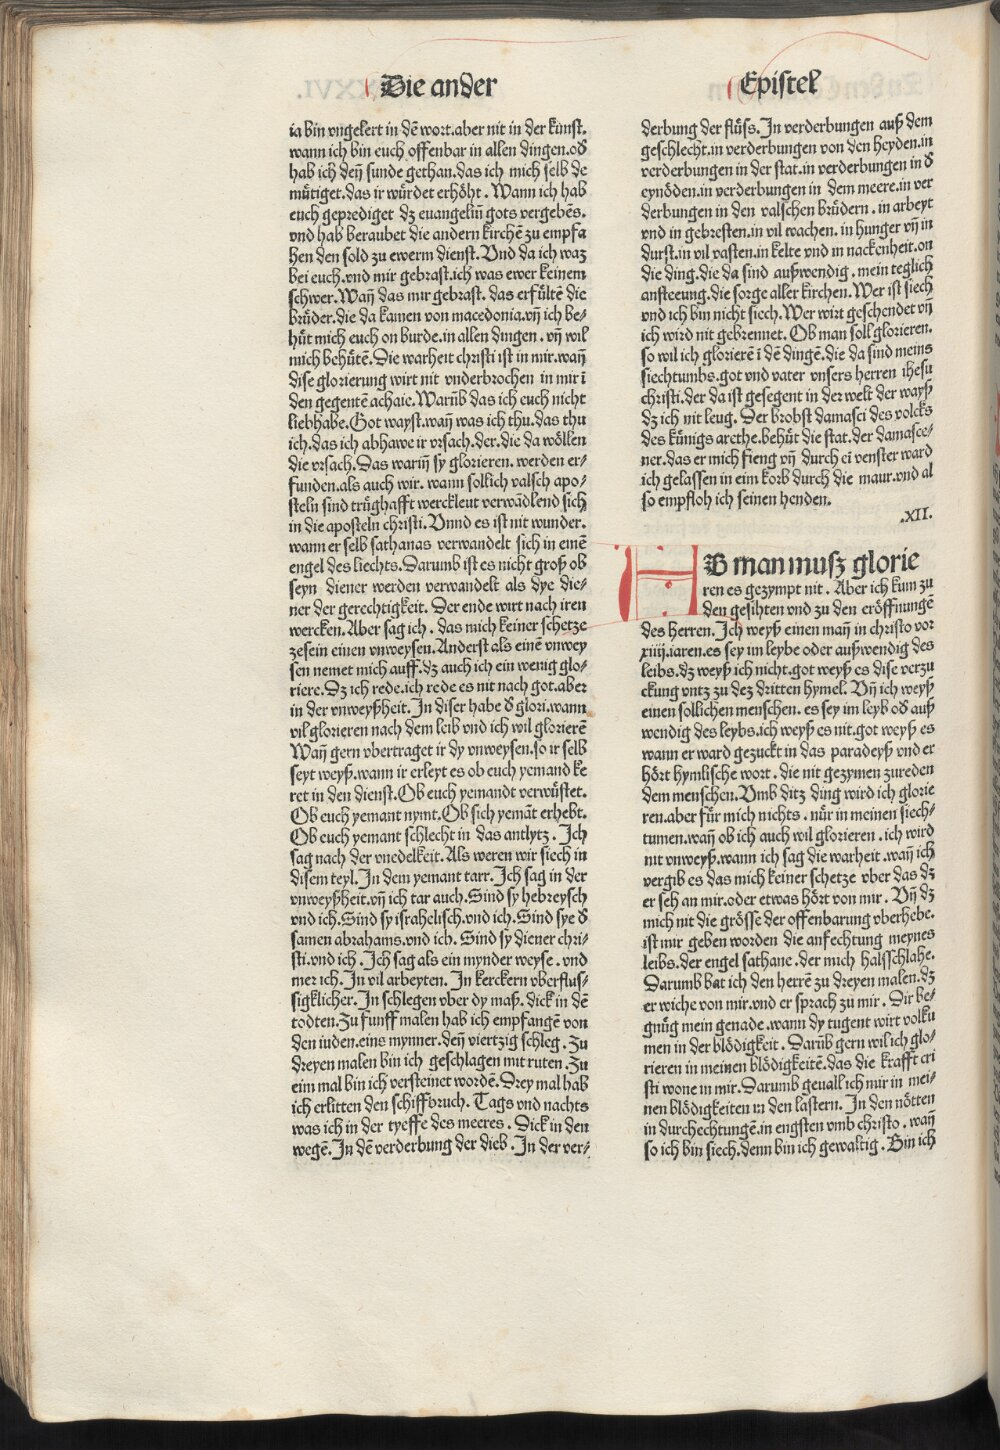 Die ander
Epistel
ia bin vngelert in dē wort.aber nit in der kunst.
wann ich bin euch offenbar in allen dingen.od
hab ich deñ sunde gethan.das ich mich selb de
mütiget.das ir würdet erhöht. Wann ich hab
euch geprediget dz euangeliū gots vergebēs.
vnd hab beraubet die andern kirchē zu empfa
hen den sold zu ewerm dienst. Vnd da ich waz
bei euch.vnd mir gebrast.ich was ewer keinem
schwer. Wañ das mir gebrast. das erfülte die
brüder.die da kamen von macedonia.vñ ich be⸗
hüt mich euch on burde.in allen dingen. vñ wil
mich behütē. Die warheit christi ist in mir.wañ
dise glorierung wirt nit vnderbrochen in mir ī
den gegentē achaie. Warūb das ich euch nicht
liebhabe. Got wayst.wañ was ich thu.das thu
ich.das ich abhawe ir vrsach.der.die da wöllen
die vrsach. Das wariñ sy glorieren. werden er⸗
funden.als auch wir. wann sollich valsch apo⸗
steln sind trüghafft werckleut verwādlend sich
in die aposteln christi. Vnnd es ist nit wunder.
wann er selb sathanas verwandelt sich in einē
engel des liechts. Darumb ist es nicht groß ob
seyn diener werden verwandelt als dye die⸗
ner der gerechtigkeit. Der ende wirt nach iren
wercken. Aber sag ich. das mich keiner schetze
zesein einen vnweysen. Anderst als einē vnwey
sen nemet mich auff.dz auch ich ein wenig glo⸗
riere. Dz ich rede.ich rede es nit nach got.aber
in der vnweyßheit. In diser habe d glori.wann
vil glorieren nach dem leib vnd ich wil glorierē
Wañ gern vbertraget ir dy vnweysen.so ir selb
seyt weyß.wann ir erleyt es ob euch yemand ke
ret in den dienst. Ob euch yemandt verwüstet.
Ob euch yemant nymt. Ob sich yemāt erhebt.
Ob euch yemant schlecht in das antlytz. Ich
sag nach der vnedelkeit. Als weren wir siech in
disem teyl. In dem yemant tarr. Ich sag in der
vnweyßheit.vñ ich tar auch. Sind sy hebreysch
vnd ich. Sind sy israhelisch.vnd ich. Sind sye d
samen abrahams.vnd ich. Sind sy diener chri⸗
sti.vnd ich. Ich sag als ein mynder weyse. vnd
mer ich. In vil arbeyten. In kerckern vberflus⸗
sigklicher. In schlegen vber dy maß. dick in dē
todten. Zu funff malen hab ich empfangē von
den iuden.eins mynner.deñ viertzig schleg. Zu
dreyen malen bin ich geschlagen mit ruten. Zu
eim mal bin ich versteinet wordē. Drey mal hab
ich erlitten den schiffbruch. Tags vnd nachts
was ich in der tyeffe des meeres. Dick in den
wegē. In dē verderbung der dieb. In der ver⸗
derbung der flüss. In verderbungen auß dem
geschlecht.in verderbungen von den heyden.in
verderbungen in der stat.in verderbungen in d
eynöden.in verderbungen in dem meere.in ver
derbungen in den valschen brüdern. in arbeyt
vnd in gebresten.in vil wachen. in hunger vñ in
durst.in vil vasten.in kelte vnd in nackenheit.on
die ding.die da sind außwendig. mein teglich
ansteeung.die sorge aller kirchen. Wer ist siech
vnd ich bin nicht siech. Wer wirt geschendet vñ
ich wird nit gebrennet. Ob man soll glorieren.
so wil ich glorierē ī dē dingē.die da sind meins
siechtumbs.got vnd vater vnsers herren ihesu
christi.der da ist gesegent in der welt der wayß
dz ich nit leug. Der brobst damasci des volcks
des künigs arethe.behüt die stat.der damasce⸗
ner.das er mich fieng vñ durch ei venster ward
ich gelassen in eim korb durch die maur.vnd al
so empfloh ich seinen henden.
.XII.
B man musz glorie
ren es gezympt nit. Aber ich kum zu
den gesihten vnd zu den eröffnungē
des herren. Ich weyß einen mañ in christo vor
xiiij.iaren.es sey im leybe oder außwendig des
leibs.dz weyß ich nicht.got weyß es dise verzu
ckung vntz zu dez dritten hymel. Vñ ich weyß
einen sollichen menschen. es sey im leyb od auß
wendig des leybs.ich weyß es nit.got weyß es
wann er ward gezuckt in das paradeyß vnd er
hört hymlische wort. die nit gezymen zureden
dem menschen. Vmb ditz ding wird ich glorie
ren.aber für mich nichts. nür in meinen siech⸗
tumen.wañ ob ich auch wil glorieren. ich wird
nit vnweyß.wann ich sag die warheit.wañ ich
vergib es das mich keiner schetze vber das dz
er seh an mir.oder etwas hört von mir. Vñ dz
mich nit die grösse der offenbarung vberhebe.
ist mir geben worden die anfechtung meynes
leibs.der engel sathane.der mich halsschlahe.
Darumb bat ich den herrē zu dreyen malen.dz
er wiche von mir.vnd er sprach zu mir. Dir be⸗
gnüg mein genade.wann dy tugent wirt volku
men in der blödigkeit. Darūb gern wil ich glo⸗
rieren in meinen blödigkeitē.das die krafft cri
sti wone in mir. Darumb geuall ich mir in mei⸗
nen blödigkeiten in den lastern. In den nötten
in durchechtungē.in engsten vmb christo. wañ
so ich bin siech.denn bin ich gewaltig. Bin ich